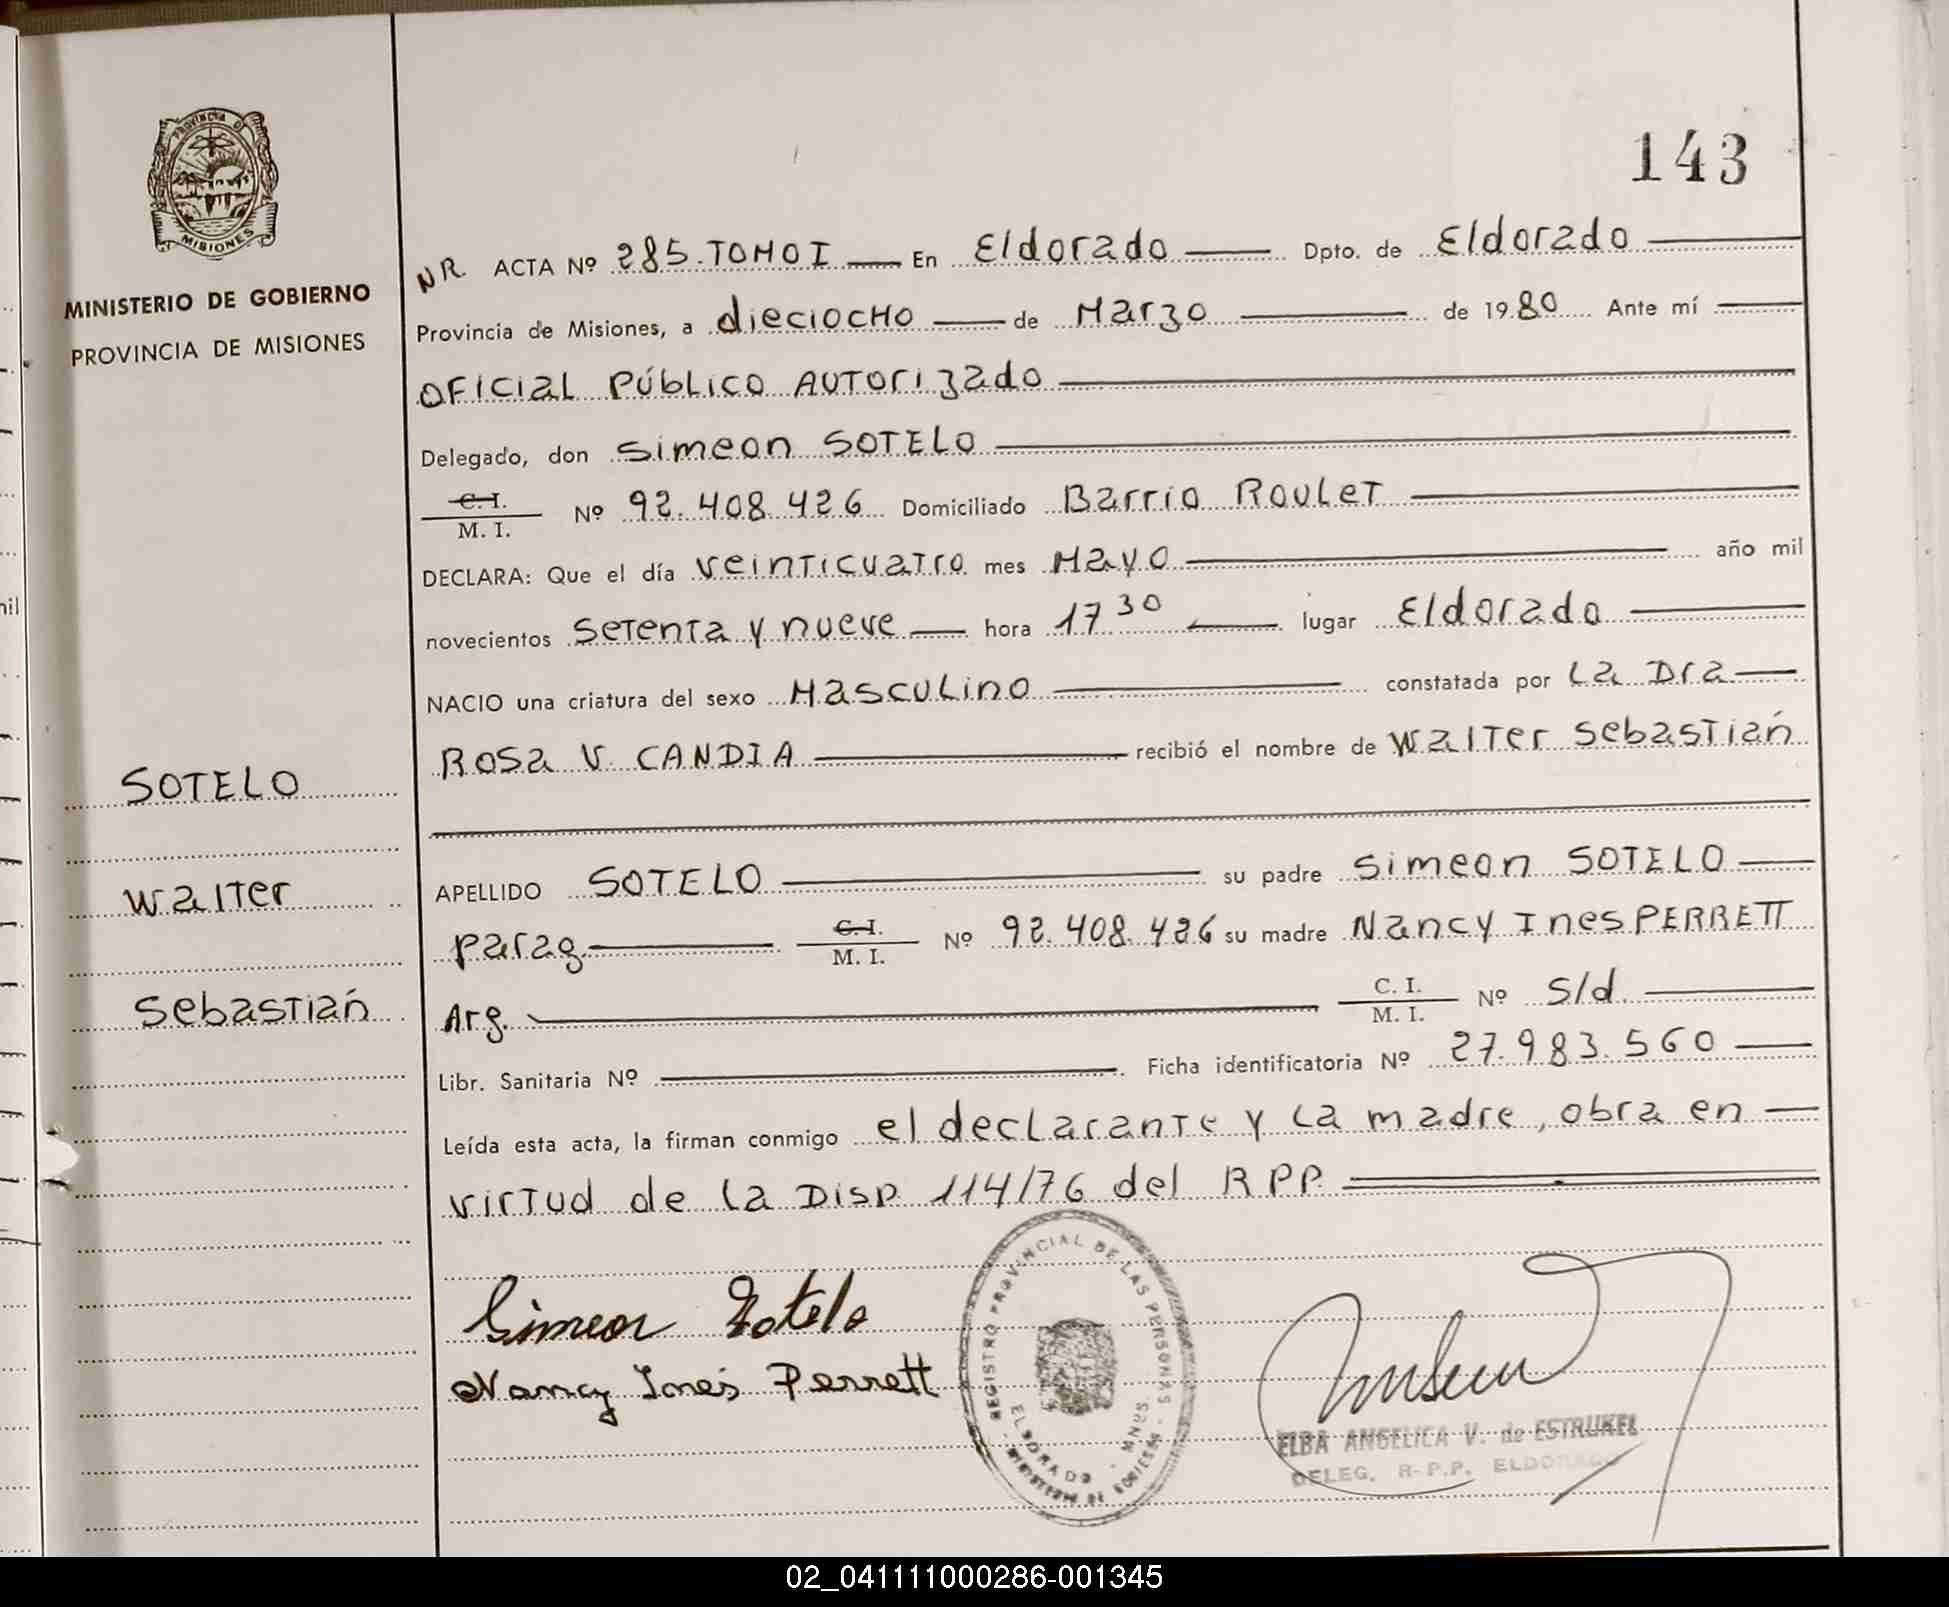 143
PROVINCIA DE
MISIONES
MINISTERIO DE GOBIERNO
PROVINCIA DE MISIONES
NR. ACTA Nº 285.TOMO I — En Eldorado — Dpto. de Eldorado —
Provincia de Misiones, a dieciocho — de Marzo — de 1980 Ante mí —
OFICIAL PÚBLICO AUTORIZADO —
Delegado, don Simeon SOTELO —
C. I.
M. I. Nº 92.408.426 Domiciliado Barrio ROULET —
DECLARA: Que el día veinticuatro mes Mayo — año mil
novecientos setenta y nueve — hora 17 30 — lugar Eldorado —
NACIO una criatura del sexo Masculino — constatada por La Dra —
Rosa V. CANDIA — recibió el nombre de Walter Sebastián
SOTELO
Walter
Sebastián
APELLIDO SOTELO — su padre Simeon SOTELO —
parag — C. I.
M. I. Nº 92.408.426 su madre Nancy Ines PERRETT
Arg. — C. I.
M. I. Nº s/d —
Libr. Sanitaria Nº — Ficha identificatoria Nº 27.983.560 —
Leída esta acta, la firman conmigo el declarante y la madre, obra en —
virtud de la Disp. 114/76 del R P P. —
Simeon Sotelo
Nancy Inés Perrett
REGISTRO PROVINCIAL DE LAS PERSONAS
ELDORADO - MNES.
MINISTERIO DE GOBIERNO
ELBA ANGELICA V. de ESTRUKEL
DELEG. R.P.P. ELDORADO
02_041111000286-001345